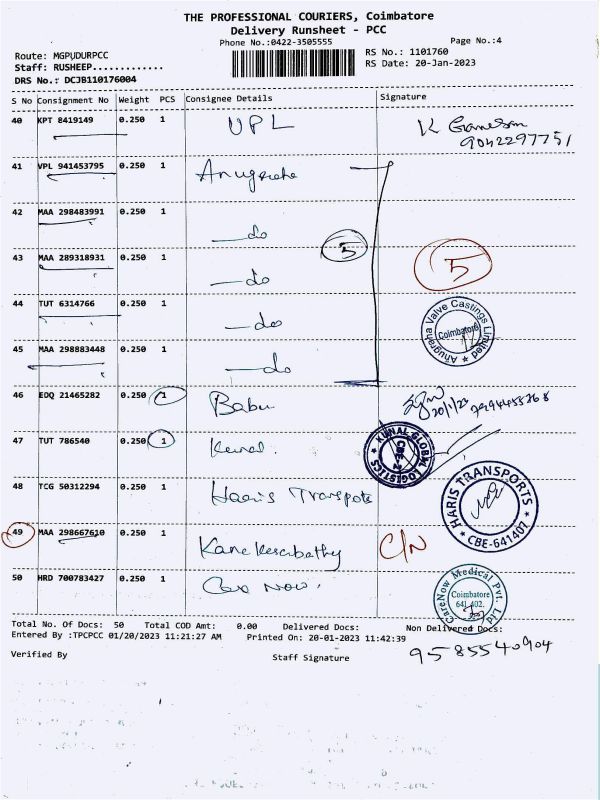 THE PROFESSIONAL COURIERS, Coimbatore
Delivery Runsheet - PCC
Phone No.:0422-3505555 Page No.:4
Route: MGPUDURPCC RS No.: 1101760
Staff: RUSHEEP............. RS Date: 20-Jan-2023
DRS No.: DCJB110176004
S No Consignment No Weight PCS Consignee Details Signature
40 KPT 8419149 0.250 1 UPL K Ganesan
9042297751
41 VPL 941453795 0.250 1 Anugraha
42 MAA 298483991 0.250 1 —do 5
43 MAA 289318931 0.250 1 —do 5
44 TUT 6314766 0.250 1 —do Anugraha Valve Castings Limited Coimbatore
45 MAA 298883448 0.250 1 —do
46 EDQ 21465282 0.250 1 Babu 20/1/23
47 TUT 786540 0.250 1 Kunal. KUNAL GLOBAL LOGISTICS CBE
48 TCG 50312294 0.250 1 Haaris Transpots HARIS TRANSPORTS CBE-641407
49 MAA 298667610 0.250 1 C/N
50 HRD 700783427 0.250 1 Care Now. CareNow Medical Pvt. Ltd Coimbatore 641 402.
Total No. Of Docs: 50 Total COD Amt: 0.00 Delivered Docs: Non Delivered Docs:
Entered By :TPCPCC 01/20/2023 11:21:27 AM Printed On: 20-01-2023 11:42:39
9585540904
Verified By Staff Signature